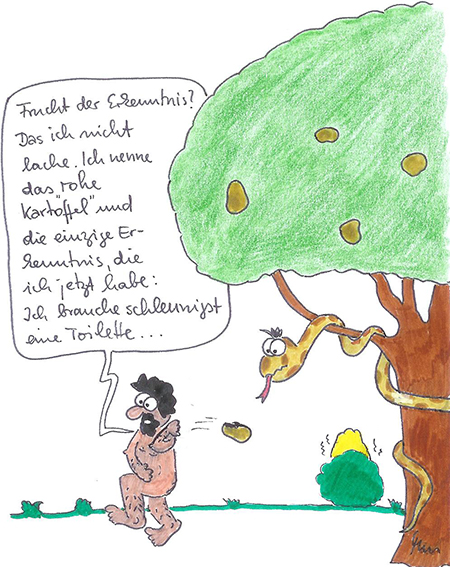 Frucht der Erkenntnis?
Das ich nicht
lache. Ich nenne
das „rohe
Kartoffel" und
die einzige Er-
kenntnis, die
ich jetzt habe:
Ich brauche schleunigst
eine Toilette...